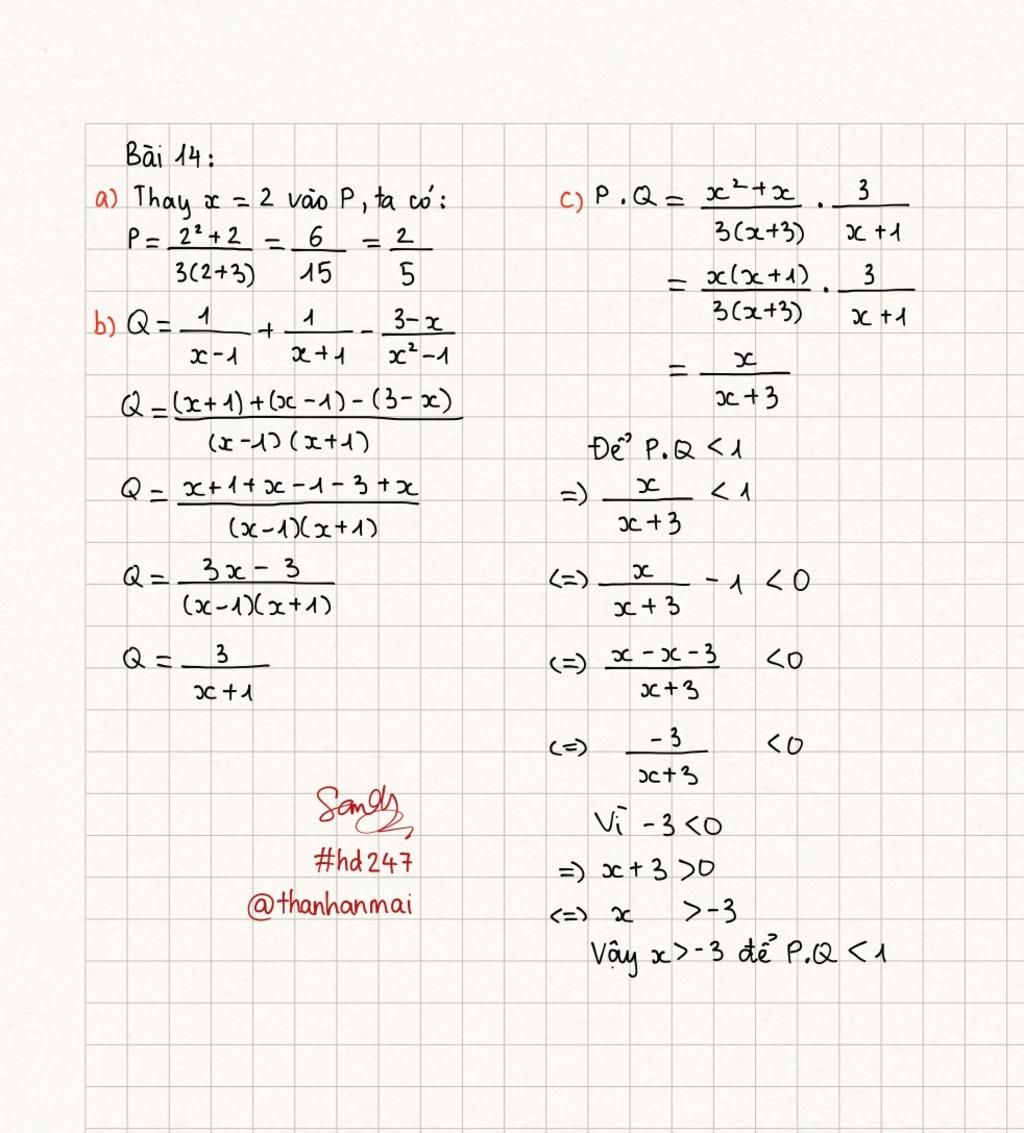 Bài 14:
a) Thay x = 2 vào P, ta có:
P = (2² + 2)/(3(2+3)) = 6/15 = 2/5
b) Q = 1/(x-1) + 1/(x+1) - (3-x)/(x²-1)
Q = ((x+1)+(x-1)-(3-x))/((x-1)(x+1))
Q = (x+1+x-1-3+x)/((x-1)(x+1))
Q = (3x-3)/((x-1)(x+1))
Q = 3/(x+1)
Sandy
#hd247
@thanhanmai
c) P.Q = (x²+x)/(3(x+3)) . 3/(x+1)
= (x(x+1))/(3(x+3)) . 3/(x+1)
= x/(x+3)
Để P.Q < 1
=) x/(x+3) < 1
(=) x/(x+3) - 1 < 0
(=) (x-x-3)/(x+3) < 0
(=) -3/(x+3) < 0
Vì -3 < 0
=) x+3 > 0
(=) x > -3
Vậy x > -3 để P.Q < 1